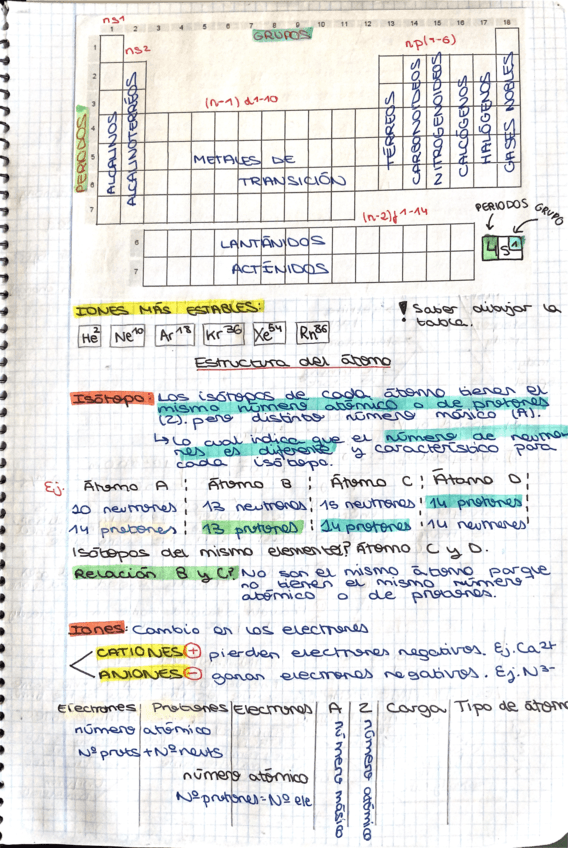 ns1
1 2 3 4 5 6 7 8 9 10 11 12 13 14 15 16 17 18
GRUPOS
ns2
np(1-6)
1
2
3
4
5
6
7
PERIODOS
ALCALINOS
ALCALINOTERRÉOS
(n-1) d1-10
METALES DE
TRANSICIÓN
TÉRREOS
CARBONOIDEOS
NITROGENOIDEOS
CALCÓGENOS
HALÓGENOS
GASES NOBLES
(n-2)f1-14
6 LANTÁNIDOS
7 ACTÍNIDOS
PERIODOS GRUPO
4s1
IONES MÁS ESTABLES:
! Saber dibujar la
tabla.
He2 Ne10 Ar18 Kr36 Xe54 Rn86
Estructura del átomo
Isótopo: Los isótopos de cada átomo tienen el
mismo número atómico o de protones
(Z), pero distinto número másico (A).
↳ Lo cual indica que el número de neutro-
nes es diferente y característico para
cada isótopo.
Ej. Átomo A Átomo B Átomo C Átamo D
13 neutrones 15 neutrones 14 protones
14 protones 13 protones 14 protones 14 neutrones
Isótopos del mismo elemento? Átomo C y D.
Relación B y C? No son el mismo átomo porque
no tienen el mismo número
atómico o de protones.
Iones: Cambio en los electrones
CATIONES + pierden electrones negativos. Ej. Ca2+
ANIONES - ganan electrones negativos. Ej. N3-
Electrones Protones Electrones A Z Carga Tipo de átomo
número atómico
Nº prots + Nº neuts
número atómico
Nº protones = Nº ele
número másico
número atómico